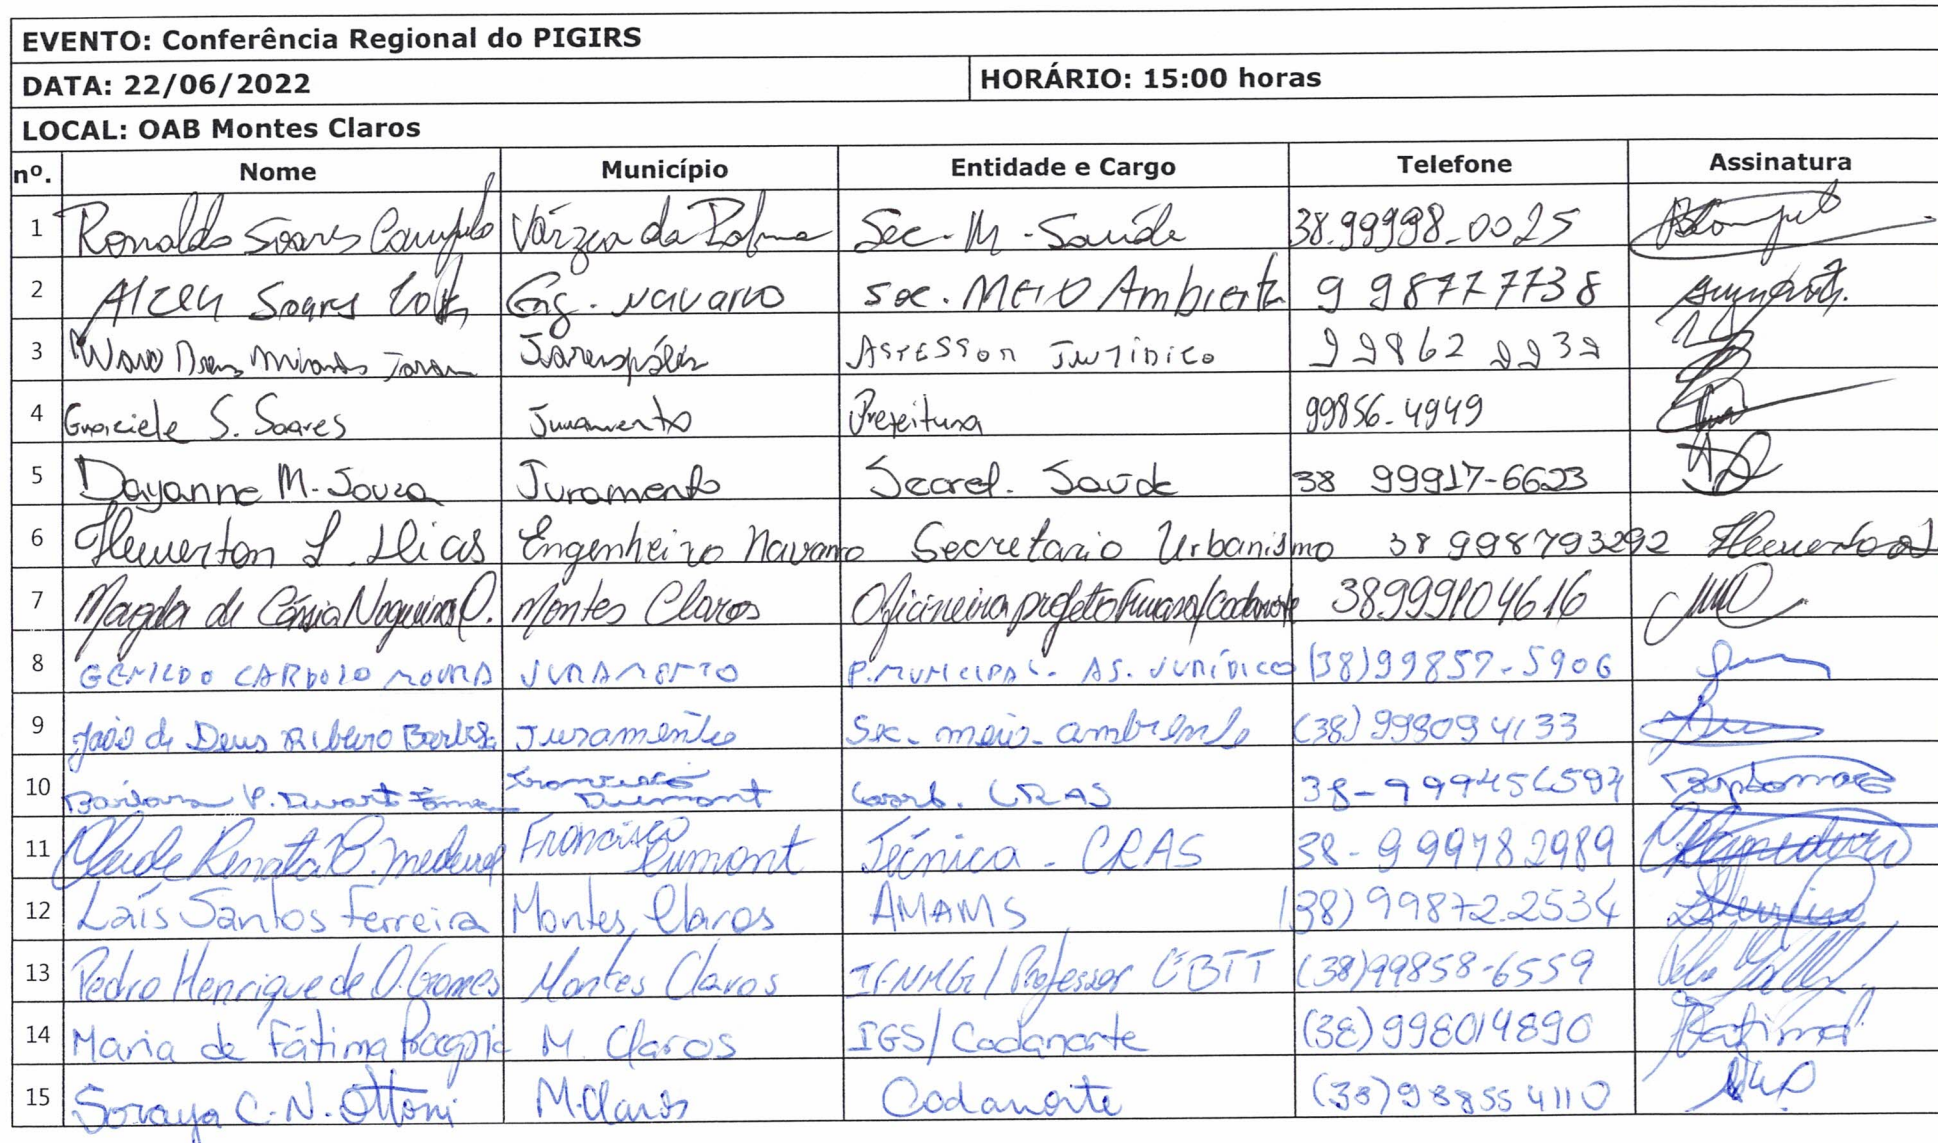 EVENTO: Conferência Regional do PIGIRS
DATA: 22/06/2022 HORÁRIO: 15:00 horas
LOCAL: OAB Montes Claros
nº. Nome Município Entidade e Cargo Telefone Assinatura
1 Ronaldo Soares Campelo Várzea da Palma Sec. M. Saúde 38.99998-0025
2 Alceu Soares Eng. Navarro Sec. Meio Ambiente 9 98777738
3 Miranda Assessor Jurídico 99862 9939
4 Graciele S. Soares Juramento Prefeitura 99856-4949
5 Dayanne M. Souza Juramento Secret. Saúde 38 99917-6623
6 Hewerton L. Dias Engenheiro Navarro Secretario Urbanismo 38 998793292
7 Magda de Cássia Nogueira O. Montes Claros Oficineira projeto Funasa/Codanorte 38999104616
8 GENILDO CARDOSO MOURA JURAMENTO P. MUNICIPAL - AS. JURÍDICO (38)99857-5906
9 João de Deus Ribeiro Barbosa Juramento Sec. meio ambiente (38) 998094133
10 Barbara P. Duarte Francisco Dumont Coord. CRAS 38-999456594
11 Cleide Renata B. Medeiros Francisco Dumont Técnica - CRAS 38-999782989
12 Laís Santos Ferreira Montes Claros AMAMS (38) 99872-2534
13 Pedro Henrique de O. Gomes Montes Claros IFNMG / Professor EBTT (38)99858-6559
14 Maria de Fátima M. Claros IGS/Codanorte (38) 998014890
15 Soraya C. N. Ottoni M.Claros Codanorte (38)988554110